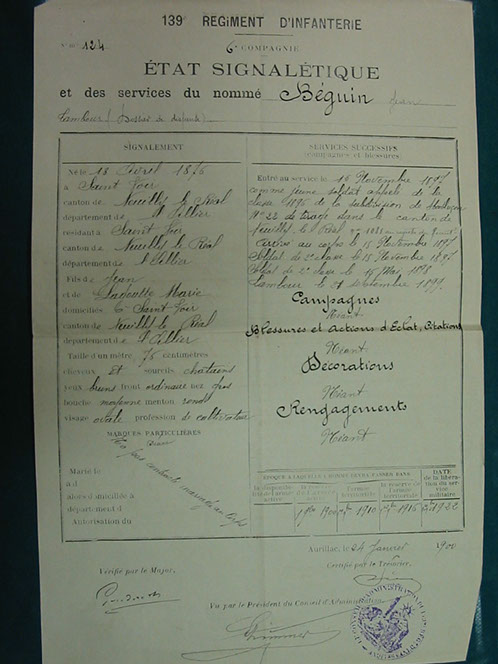 139e REGIMENT D'INFANTERIE
N° 124
6e COMPAGNIE
ÉTAT SIGNALÉTIQUE
et des services du nommé Béguin Jean
Tambour
SIGNALEMENT
Né le 18 Avril 1876
à Saint Voir
canton de Neuilly le Réal
département de l'Allier
résidant à Saint Voir
canton de Neuilly le Réal
département de l'Allier
Fils de Jean
et de Marie
domiciliés à Saint Voir
canton de Neuilly le Réal
département de l'Allier
Taille d'un mètre 75 centimètres
cheveux et sourcils chatains
yeux bruns front ordinaire nez gros
bouche moyenne menton rond
visage ovale profession de cultivateur
MARQUES PARTICULIÈRES
Marié le
à d
alors domiciliée à
département d
Autorisation du
SERVICES SUCCESSIFS
campagnes et blessures
Entré au service le 16 Novembre 1897
comme jeune soldat appelé de la
classe 1896 de la subdivision de
N° 22 de tirage dans le canton de
Neuilly le Réal
Arrivé au corps le 15 Novembre 1897
Soldat de 2e classe le 15 Novembre 1897
Soldat de 1e classe le 15 Mai 1898
Tambour le 21 Septembre 1899
Campagnes
Néant
Blessures et Actions d'Eclat, Citations
Néant
Décorations
Néant
Rengagements
Néant
ÉPOQUE A LAQUELLE L'HOMME DEVRA PASSER DANS
DATE de la libération du service militaire
la réserve de l'armée active
l'armée territoriale
la réserve de l'armée territoriale
1900 1910 1916 1922
Aurillac, le 24 Janvier 1900
Vérifié par le Major,
Certifié par le Trésorier,
Vu par le Président du Conseil d'Administration,